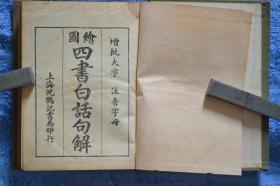 增批大字 注音字母
繪圖
四書白話句解
上海沈鶴記書局印行